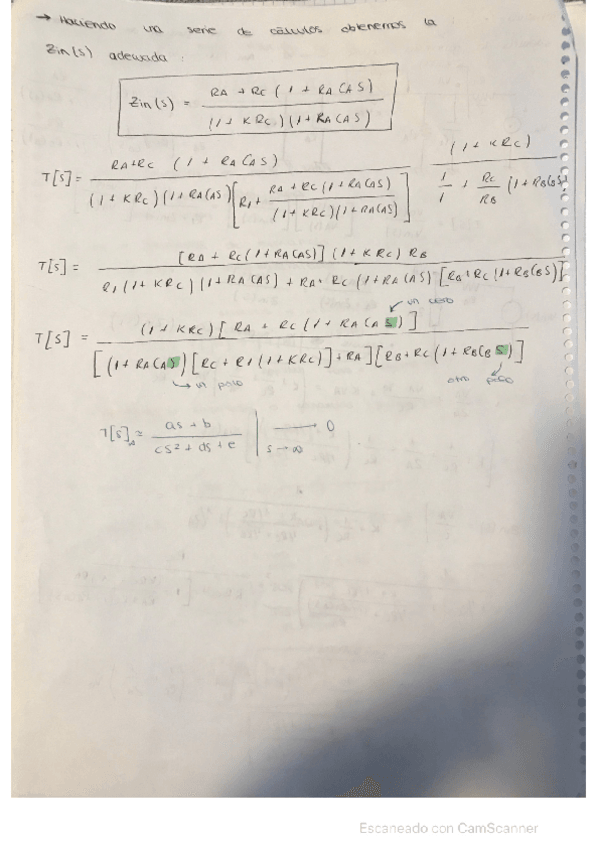 → Haciendo una serie de cálculos obtenemos la
Zin(s) adecuada :
Zin(s) = RA + RC (1 + RACAS) / (1 + KRC)(1 + RACAS)
T[s] = RA+RC (1 + RACAS) / (1 + KRC)(1+RACAS)[R1+ RA + RC(1+RACAS) / (1+KRC)(1+RACAS)] (1 + KRC) / 1/1 + RC/RB (1+RBCBS)
T[s] = [RA + RC(1+RACAS)](1 + KRC) RB / R1(1+KRC)(1+RACAS] + RA+ RC (1+RACAS) [RB+RC(1+RBCBS)]
un cero
T[s] = (1 + KRC)[RA + RC(1+RACAS)] / [(1+RACAS)[RC+R1(1+KRC)]+RA][RB+RC(1+RBCBS)]
un polo otro polo
T[s] = as + b / cs² + ds + e | s→∞ → 0
Escaneado con CamScanner